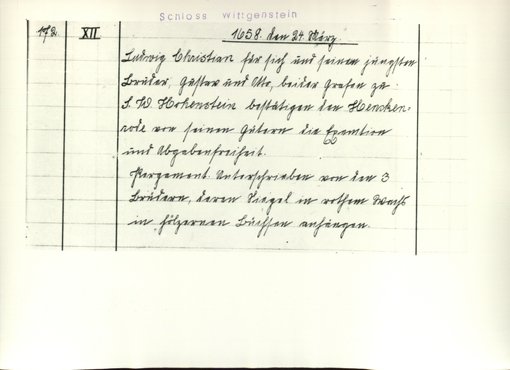 Schloss Wittgenstein
172. XII 1658. den 24. März.
Ludwig Christian für sich und seinen jüngsten
Bruder, Gustav und Otto, beider Grafen zu
S. W. Hohenstein bestätigen den Hencken-
rode von seinen Gütern die Exemtion
und Abgabenfreiheit.
Pergament. Unterschrieben von den 3
Brüdern, deren Siegel in rothem Wachs
in hölzernen Büchsen anhängen.